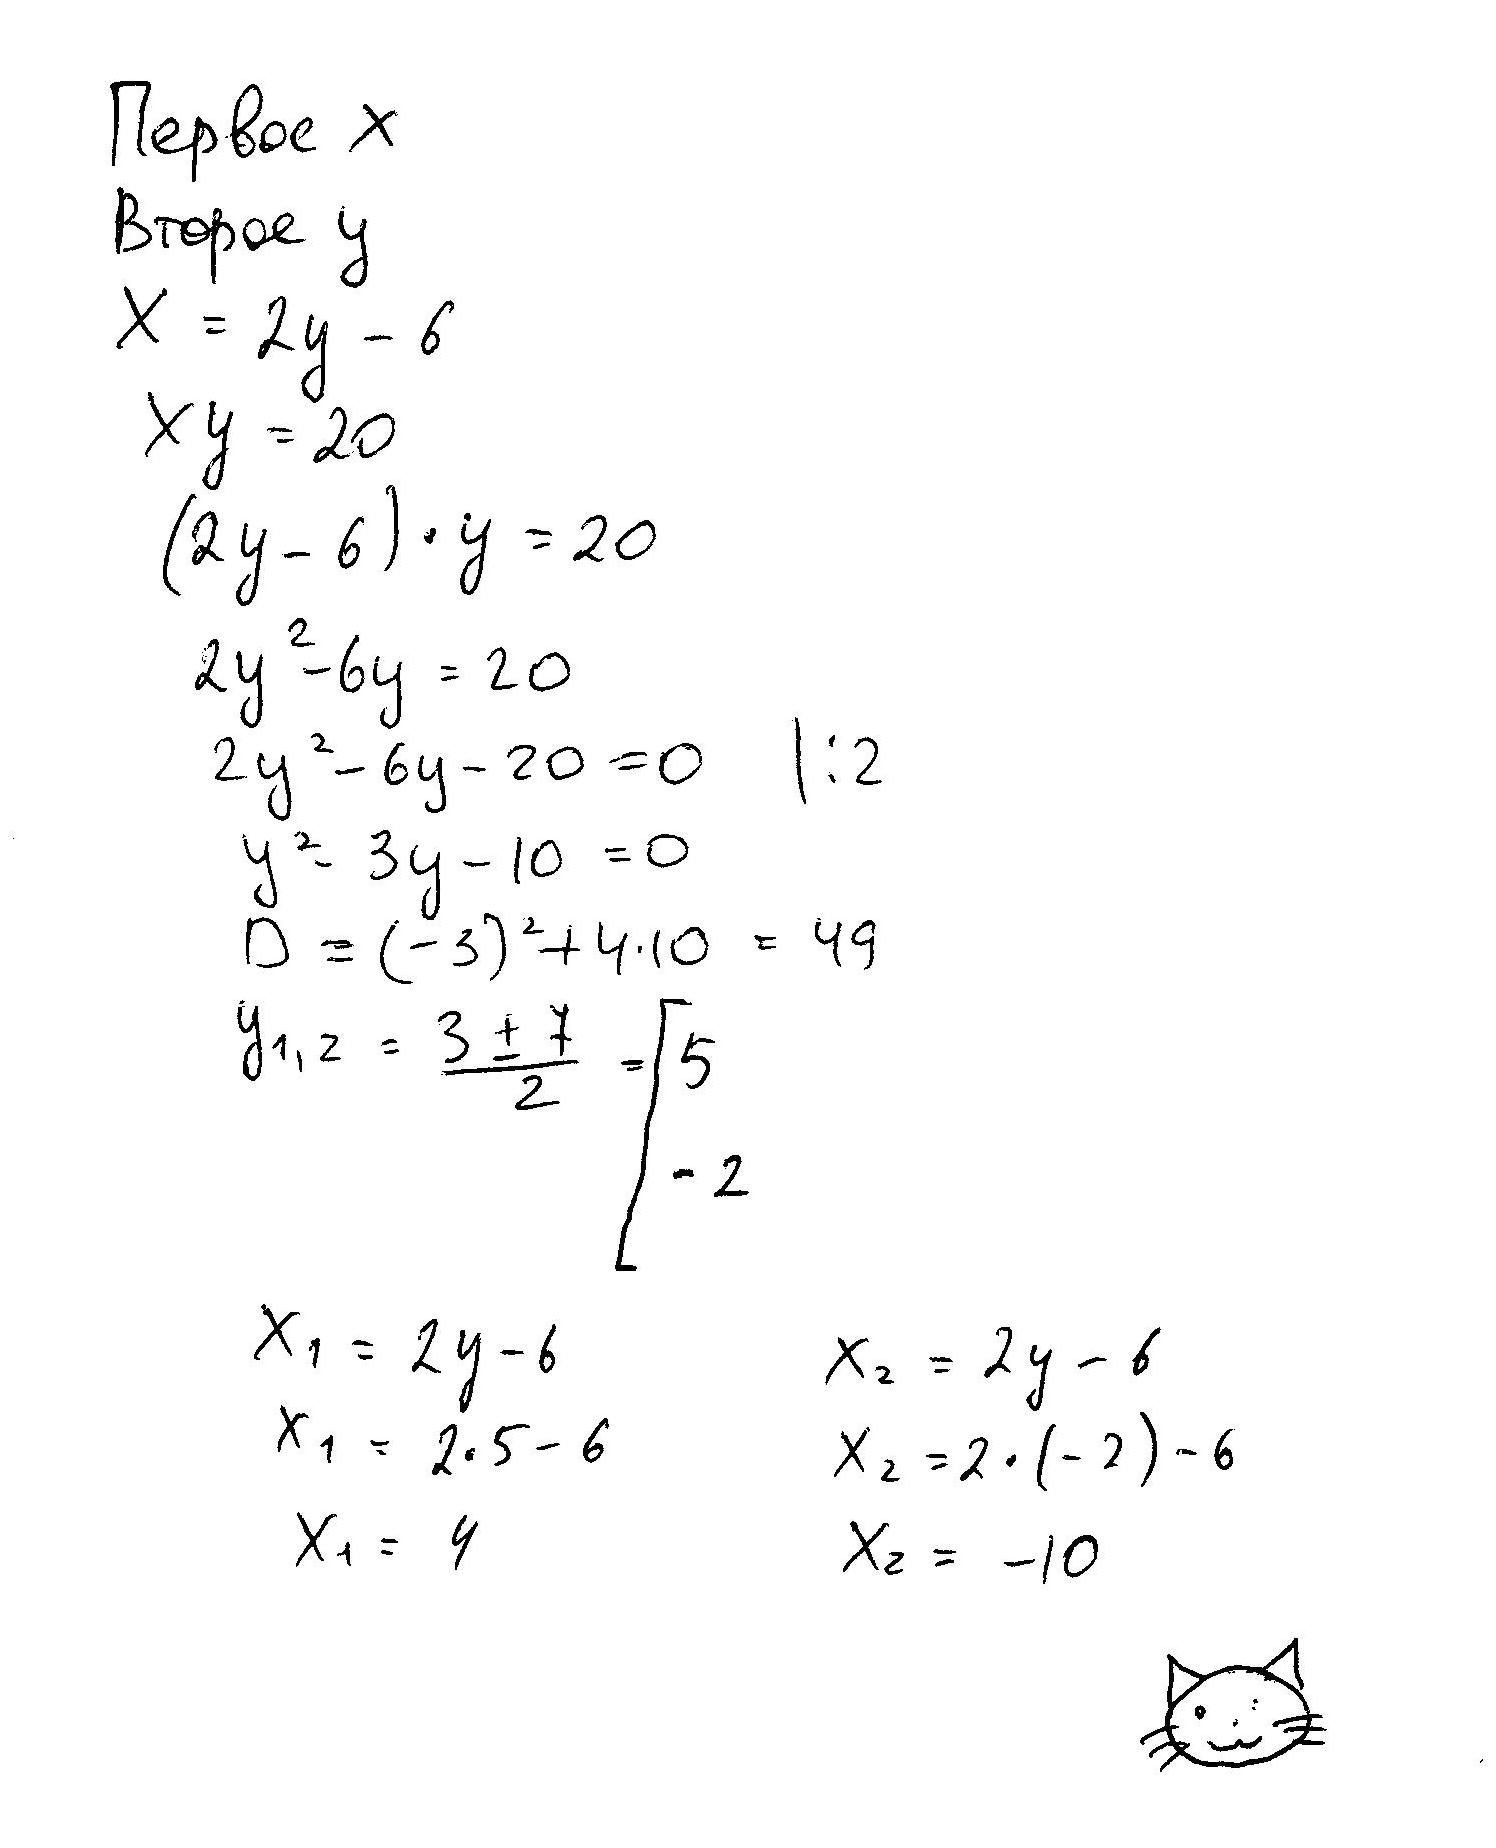 Первое x
Второе y
X = 2y - 6
xy = 20
(2y - 6) · y = 20
2y² - 6y = 20
2y² - 6y - 20 = 0 |:2
y² - 3y - 10 = 0
D = (-3)² + 4·10 = 49
y₁,₂ = (3 ± 7)/2 = [5
-2
x₁ = 2y - 6
x₁ = 2·5 - 6
x₁ = 4
x₂ = 2y - 6
x₂ = 2·(-2) - 6
x₂ = -10